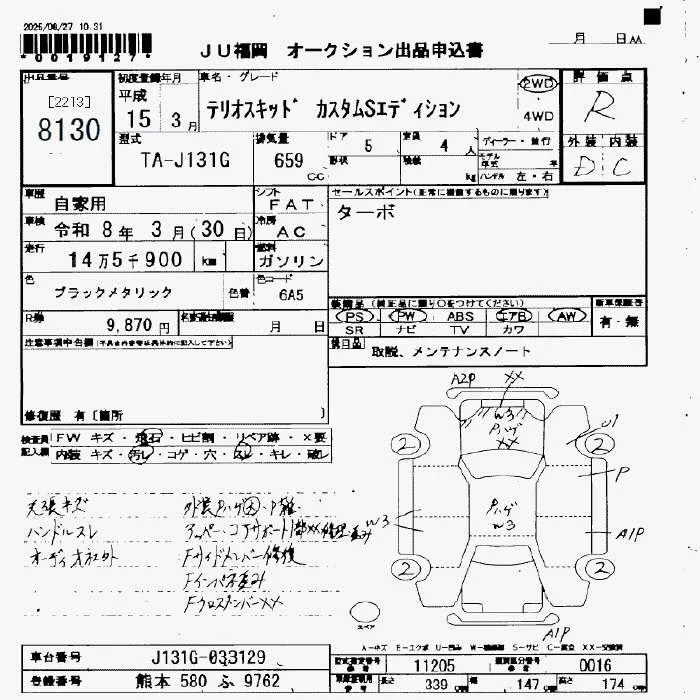 2025/08/27 10:31
*0019127*
JU福岡 オークション出品申込書
月 日
出品番号
[2213]
8130
初度登録年月
平成
15 3月
車名・グレード
テリオスキッド カスタムSエディション
2WD
4WD
評価点
R
外装 内装
D C
型式
TA-J131G
排気量
659
CC
ドア 5
形状
定員 4人
積載 kg
ディーラー・並行
モデル年式 年
ハンドル 左・右
車歴
自家用
シフト
FAT
車検
令和 8年 3月(30日)
冷房
AC
走行
14万5千900 km
燃料
ガソリン
色
ブラックメタリック
色替
色コード
6A5
R券
9,870円
月 日
セールスポイント(正常に機能するものに限ります)
ターボ
装備品(純正品に限り○をつけてください)
PS PW ABS エアB AW
SR ナビ TV カワ
新車保証書
有・無
後日品
取説、メンテナンスノート
注意事項申告欄
修復歴 有[箇所 ]
検査員記入欄
FW キズ・飛石・ヒビ割・リペア跡・×要
内装 キズ・汚レ・コゲ・穴・スレ・キレ・破レ
天張キズ
ハンドルスレ
A2P XX
W3
Pハゲ
XX
U1
P
A1P
W3
Pハゲ
W3
2
2
2
2
A1P
スペア
A-キズ E-エクボ U-凹み W-補修跡 S-サビ C-腐食 XX-交換済
車台番号
J131G-033129
登録番号
熊本 580 ふ 9762
型式指定番号
11205
類別区分番号
0016
長さ 339 cm
幅 147 cm
高さ 174 cm